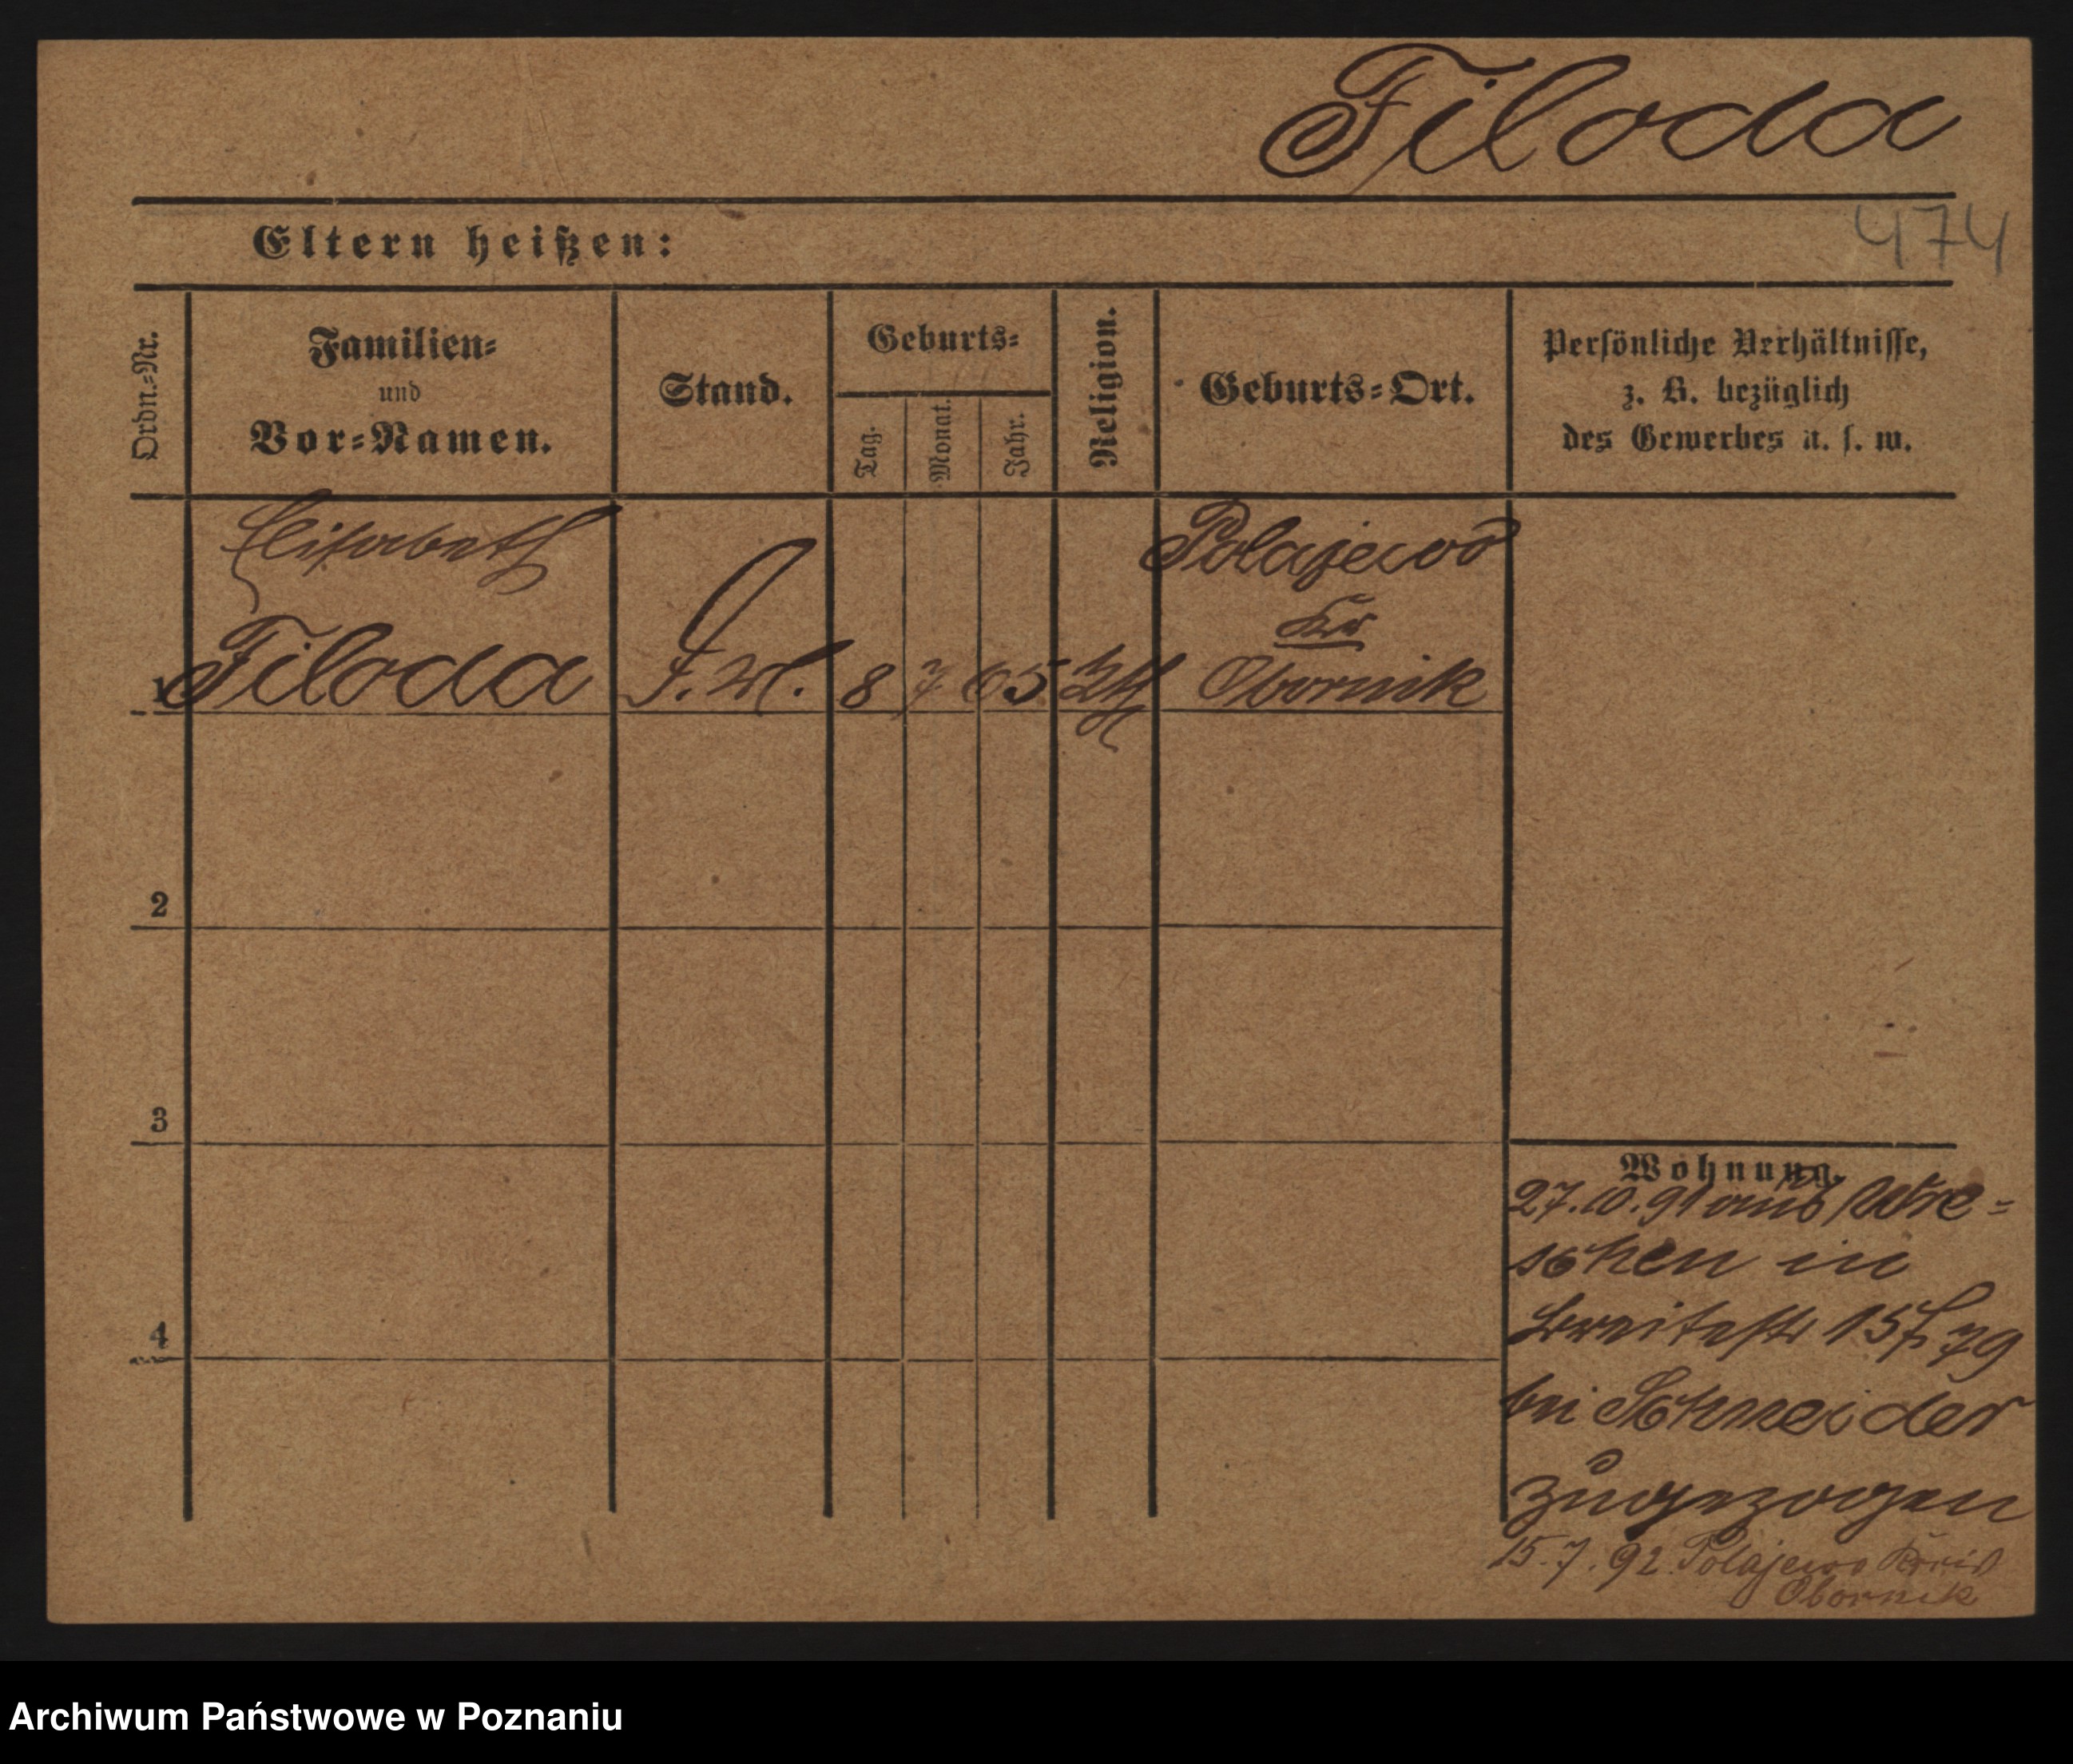 Filoda
474
Eltern heißen:
Ordn.-Nr.
Familien-
und
Vor-Namen.
Stand.
Geburts-
Tag.
Monat.
Jahr.
Religion.
Geburts-Ort.
Persönliche Verhältnisse,
z. B. bezüglich
des Gewerbes u. s. w.
1
Elisabeth
Filoda
8
7
65
Polajewo
Kr
Obornik
2
3
4
Wohnung.
27.10.91 aus Wre-
schen in
Breitestr 15
bei Schneider
zugezogen
15.7.92. Polajewo Kreis
Obornik
Archiwum Państwowe w Poznaniu